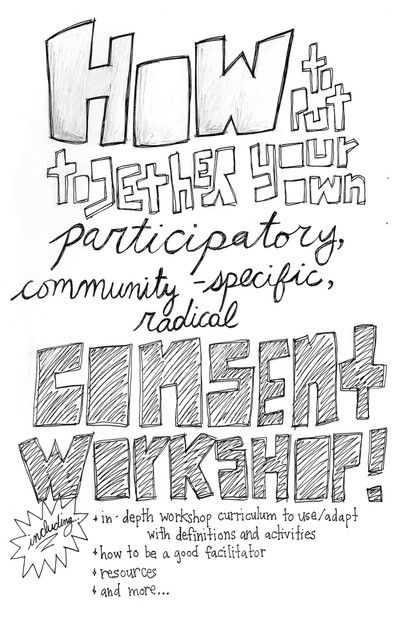 HOW to
put
toGEthER your
own
participatory,
community-specific,
radical
CONSENt
WORKSHOP!
including...
+ in-depth workshop curriculum to use/adapt
with definitions and activities
+ how to be a good facilitator
+ resources
+ and more...